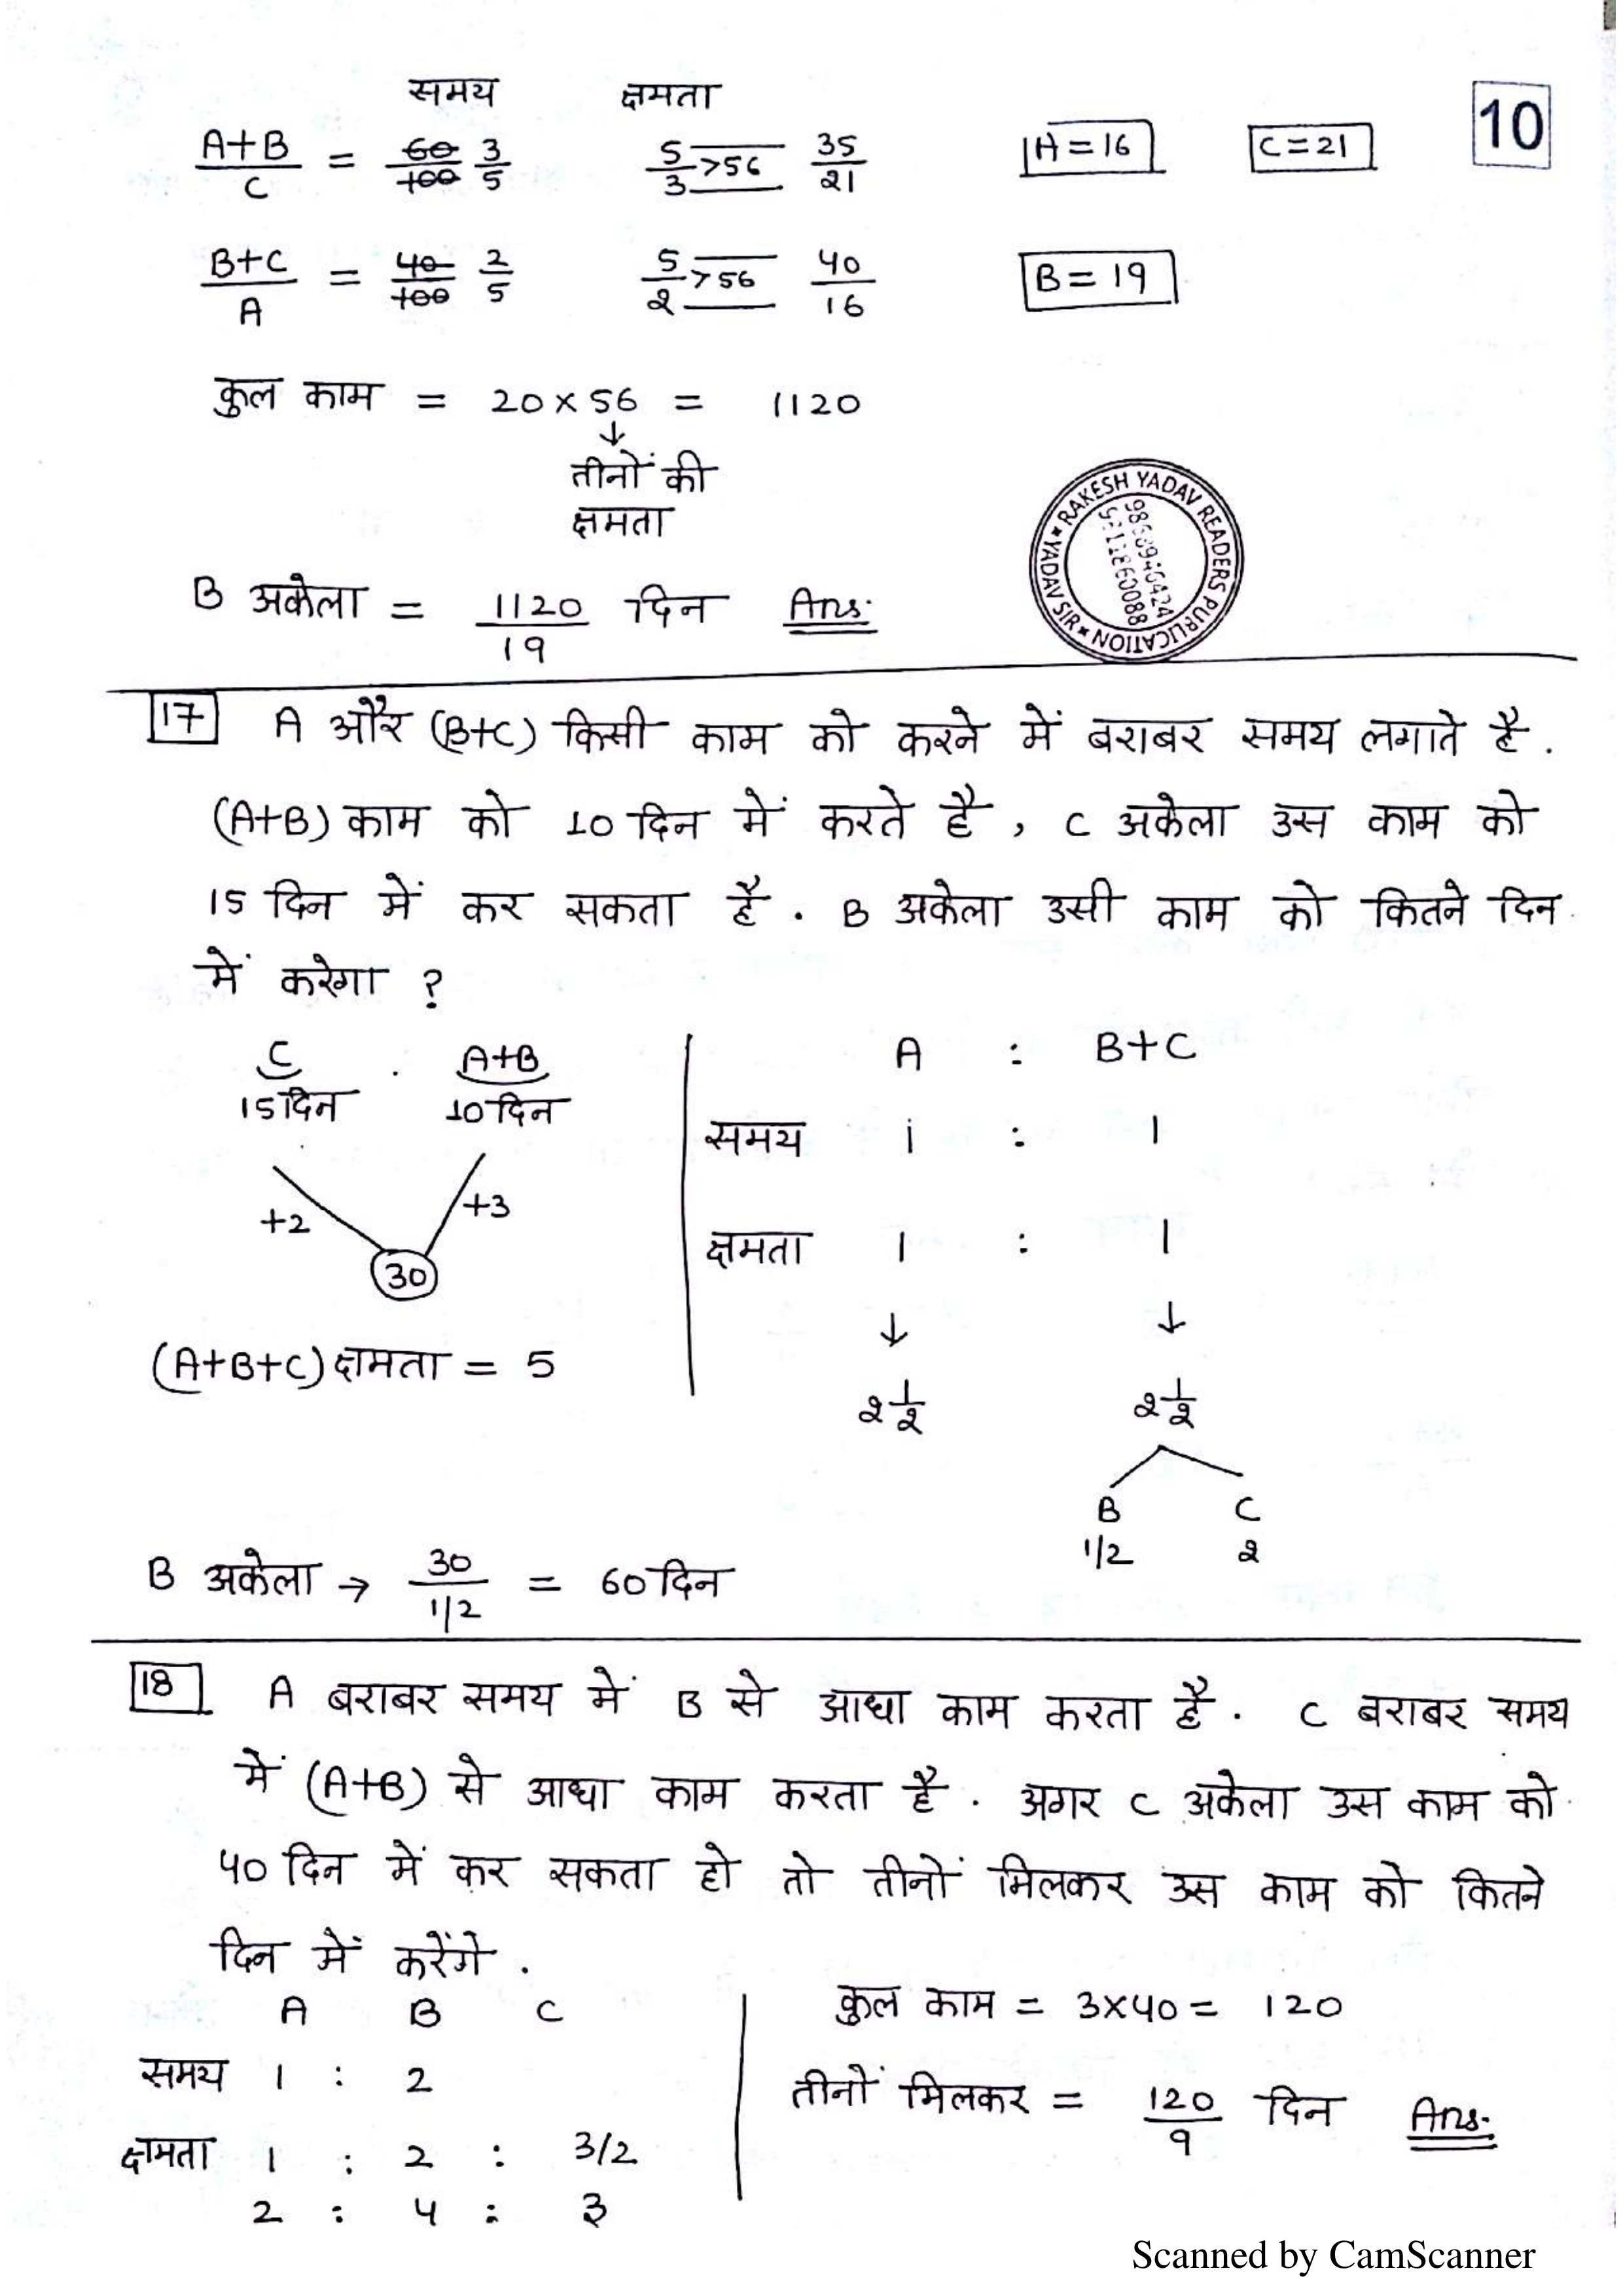 10
समय क्षमता
A+B/C = 60/100 3/5 5/3 >56 35/21 A=16 C=21
B+C/A = 40/100 2/5 5/2 >56 40/16 B=19
कुल काम = 20×56 = 1120
↓
तीनों की
क्षमता
RAKESH YADAV READERS PUBLICATION * YADAV SIR *
B अकेला = 1120/19 दिन Ans.
17 A और (B+C) किसी काम को करने में बराबर समय लगाते है.
(A+B) काम को 10 दिन में करते है, C अकेला उस काम को
15 दिन में कर सकता है. B अकेला उसी काम को कितने दिन
में करेगा ?
C A+B
15 दिन 10 दिन
+2 +3
30
(A+B+C) क्षमता = 5
A : B+C
समय 1 : 1
क्षमता 1 : 1
↓ ↓
2 1/2 2 1/2
B C
1/2 2
B अकेला → 30/1/2 = 60 दिन
18 A बराबर समय में B से आधा काम करता है. C बराबर समय
में (A+B) से आधा काम करता है. अगर C अकेला उस काम को
40 दिन में कर सकता हो तो तीनों मिलकर उस काम को कितने
दिन में करेंगे.
A B C
समय 1 : 2
क्षमता 1 : 2 : 3/2
2 : 4 : 3
कुल काम = 3×40 = 120
तीनों मिलकर = 120/9 दिन Ans.
Scanned by CamScanner